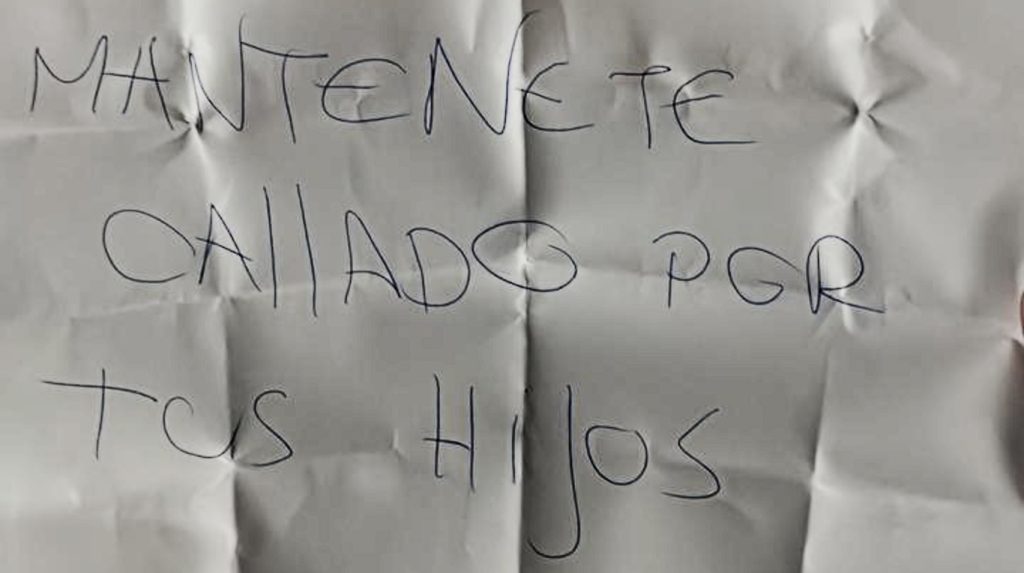 MANTENETE
CAllADO POR
TUS HIJOS